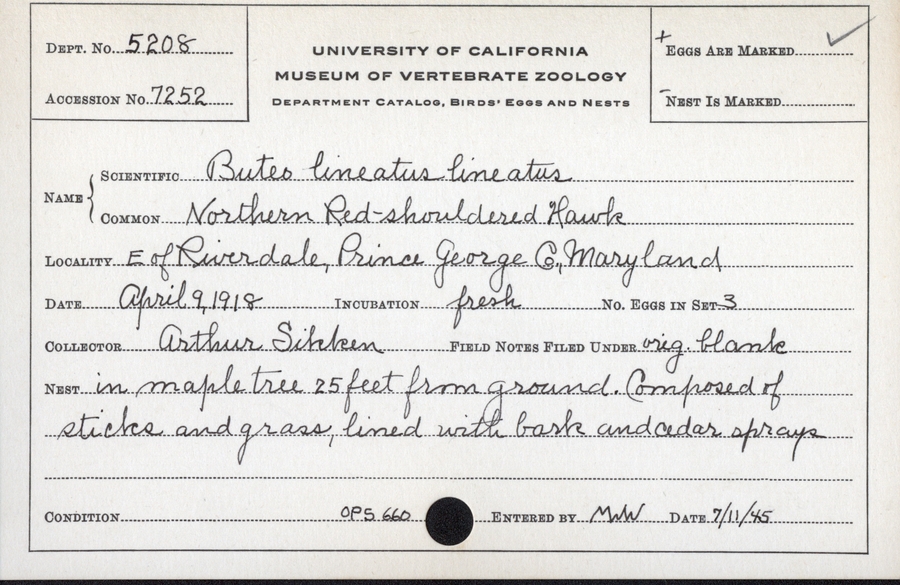 DEPT. NO. 5208
ACCESSION NO. 7252
UNIVERSITY OF CALIFORNIA
MUSEUM OF VERTEBRATE ZOOLOGY
DEPARTMENT CATALOG, BIRDS' EGGS AND NESTS
+ EGGS ARE MARKED ✓
- NEST IS MARKED
NAME { SCIENTIFIC Buteo lineatus lineatus
COMMON Northern Red-shouldered Hawk
LOCALITY E of Riverdale, Prince George Co., Maryland
DATE April 9, 1918 INCUBATION fresh NO. EGGS IN SET 3
COLLECTOR Arthur Sikken FIELD NOTES FILED UNDER orig. blank
NEST in maple tree 25 feet from ground. Composed of
sticks and grass, lined with bark and cedar sprays
CONDITION OPS 660 ENTERED BY MWW DATE 7/11/45